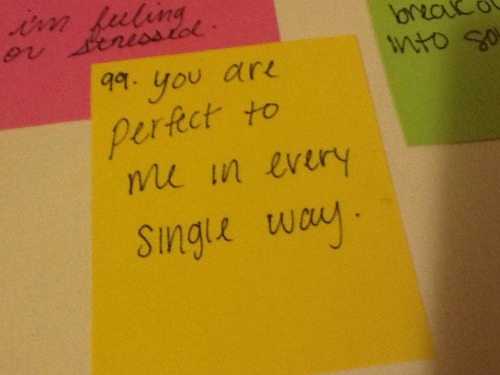 i'm feeling
or stressed.
99. you are
perfect to
me in every
single way.
break
into